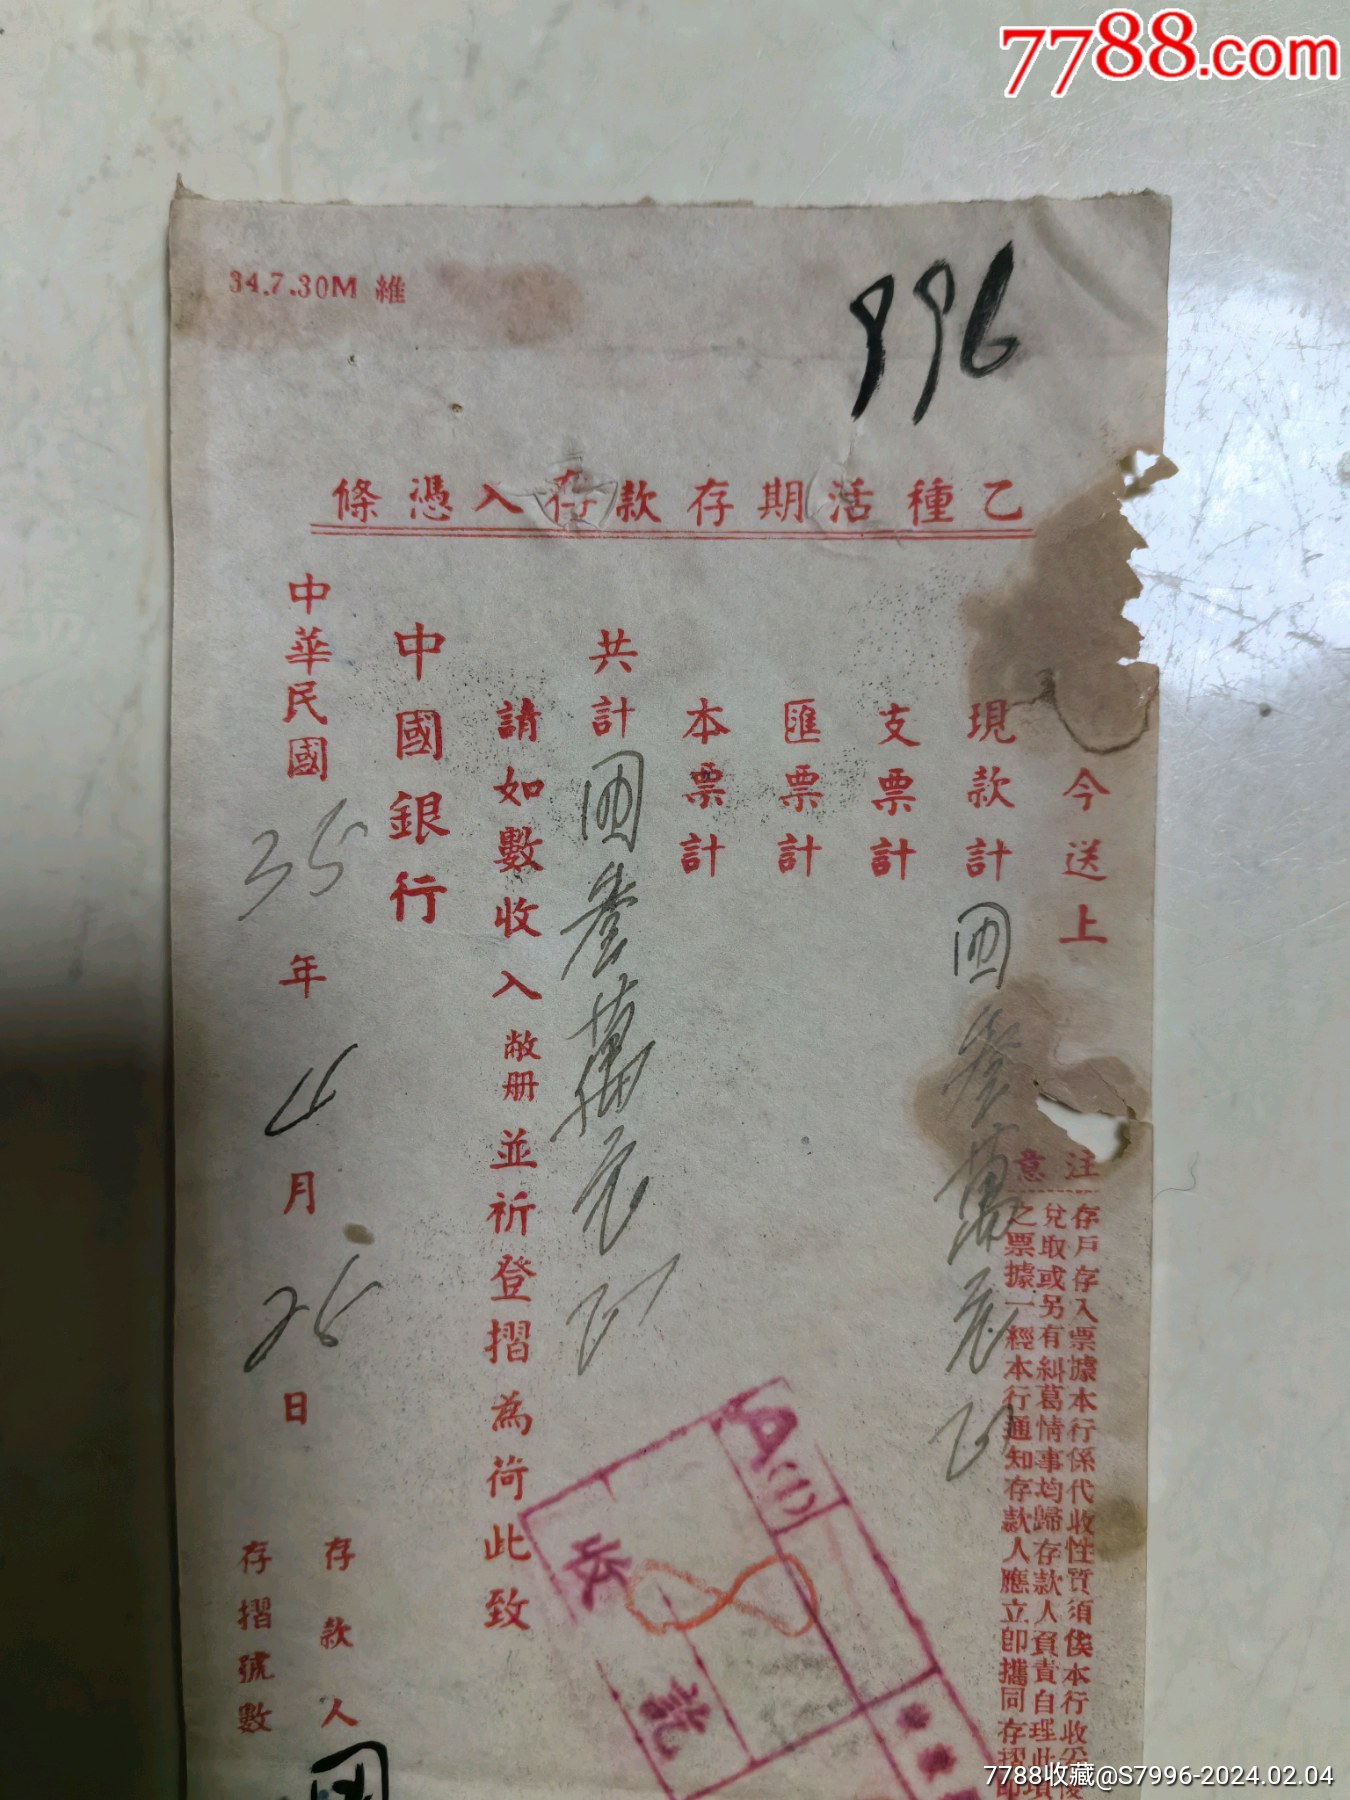 7788.com
34.7.30M 維
996
乙種活期存款存入憑條
今送上
現款計國幣叁萬元正
支票計
匯票計
本票計
共計國幣叁萬元正
請如數收入敝册並祈登摺為荷此致
中國銀行
中華民國35年4月25日
存款人國
存摺號數
注意
存戶存入票據本行係代收性質須俟本行收
兌取或另有糾葛情事均歸存款人負責自理此項
之票據一經本行通知存款人應立即攜同存摺
A(1)
收
訖
7788收藏@S7996-2024.02.04